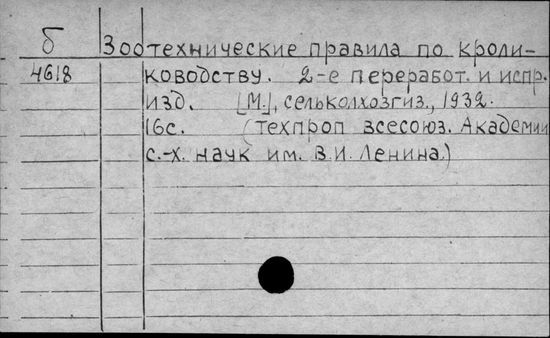 б Зоотехнические правила по кроли-
4618 ководству. 2-е переработ. и испр.
изд. [М.], сельколхозгиз., 1932.
16с. (техпроп всесоюз. Академии
с.-х. наук им. В.И. Ленина.)